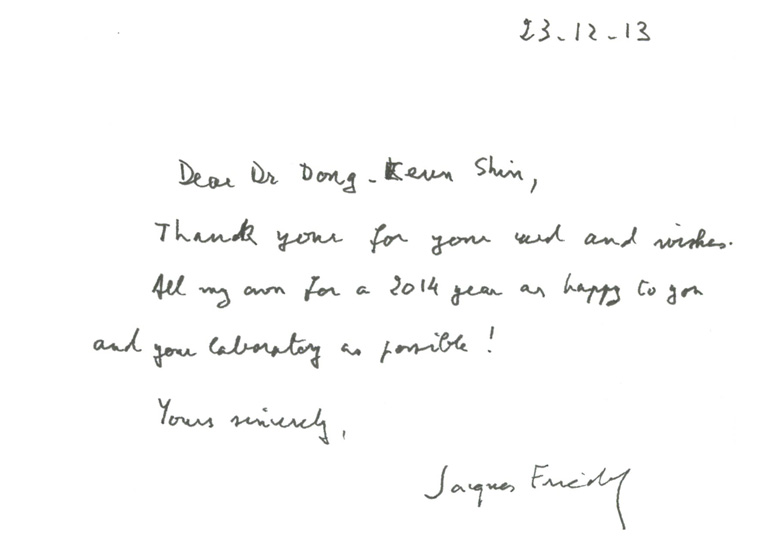 23-12-13
Dear Dr Dong-Keun Shin,
Thank your for your card and wishes.
All my own for a 2014 year as happy to you
and your laboratory as possible !
Yours sincerely,
Jacques Friedel